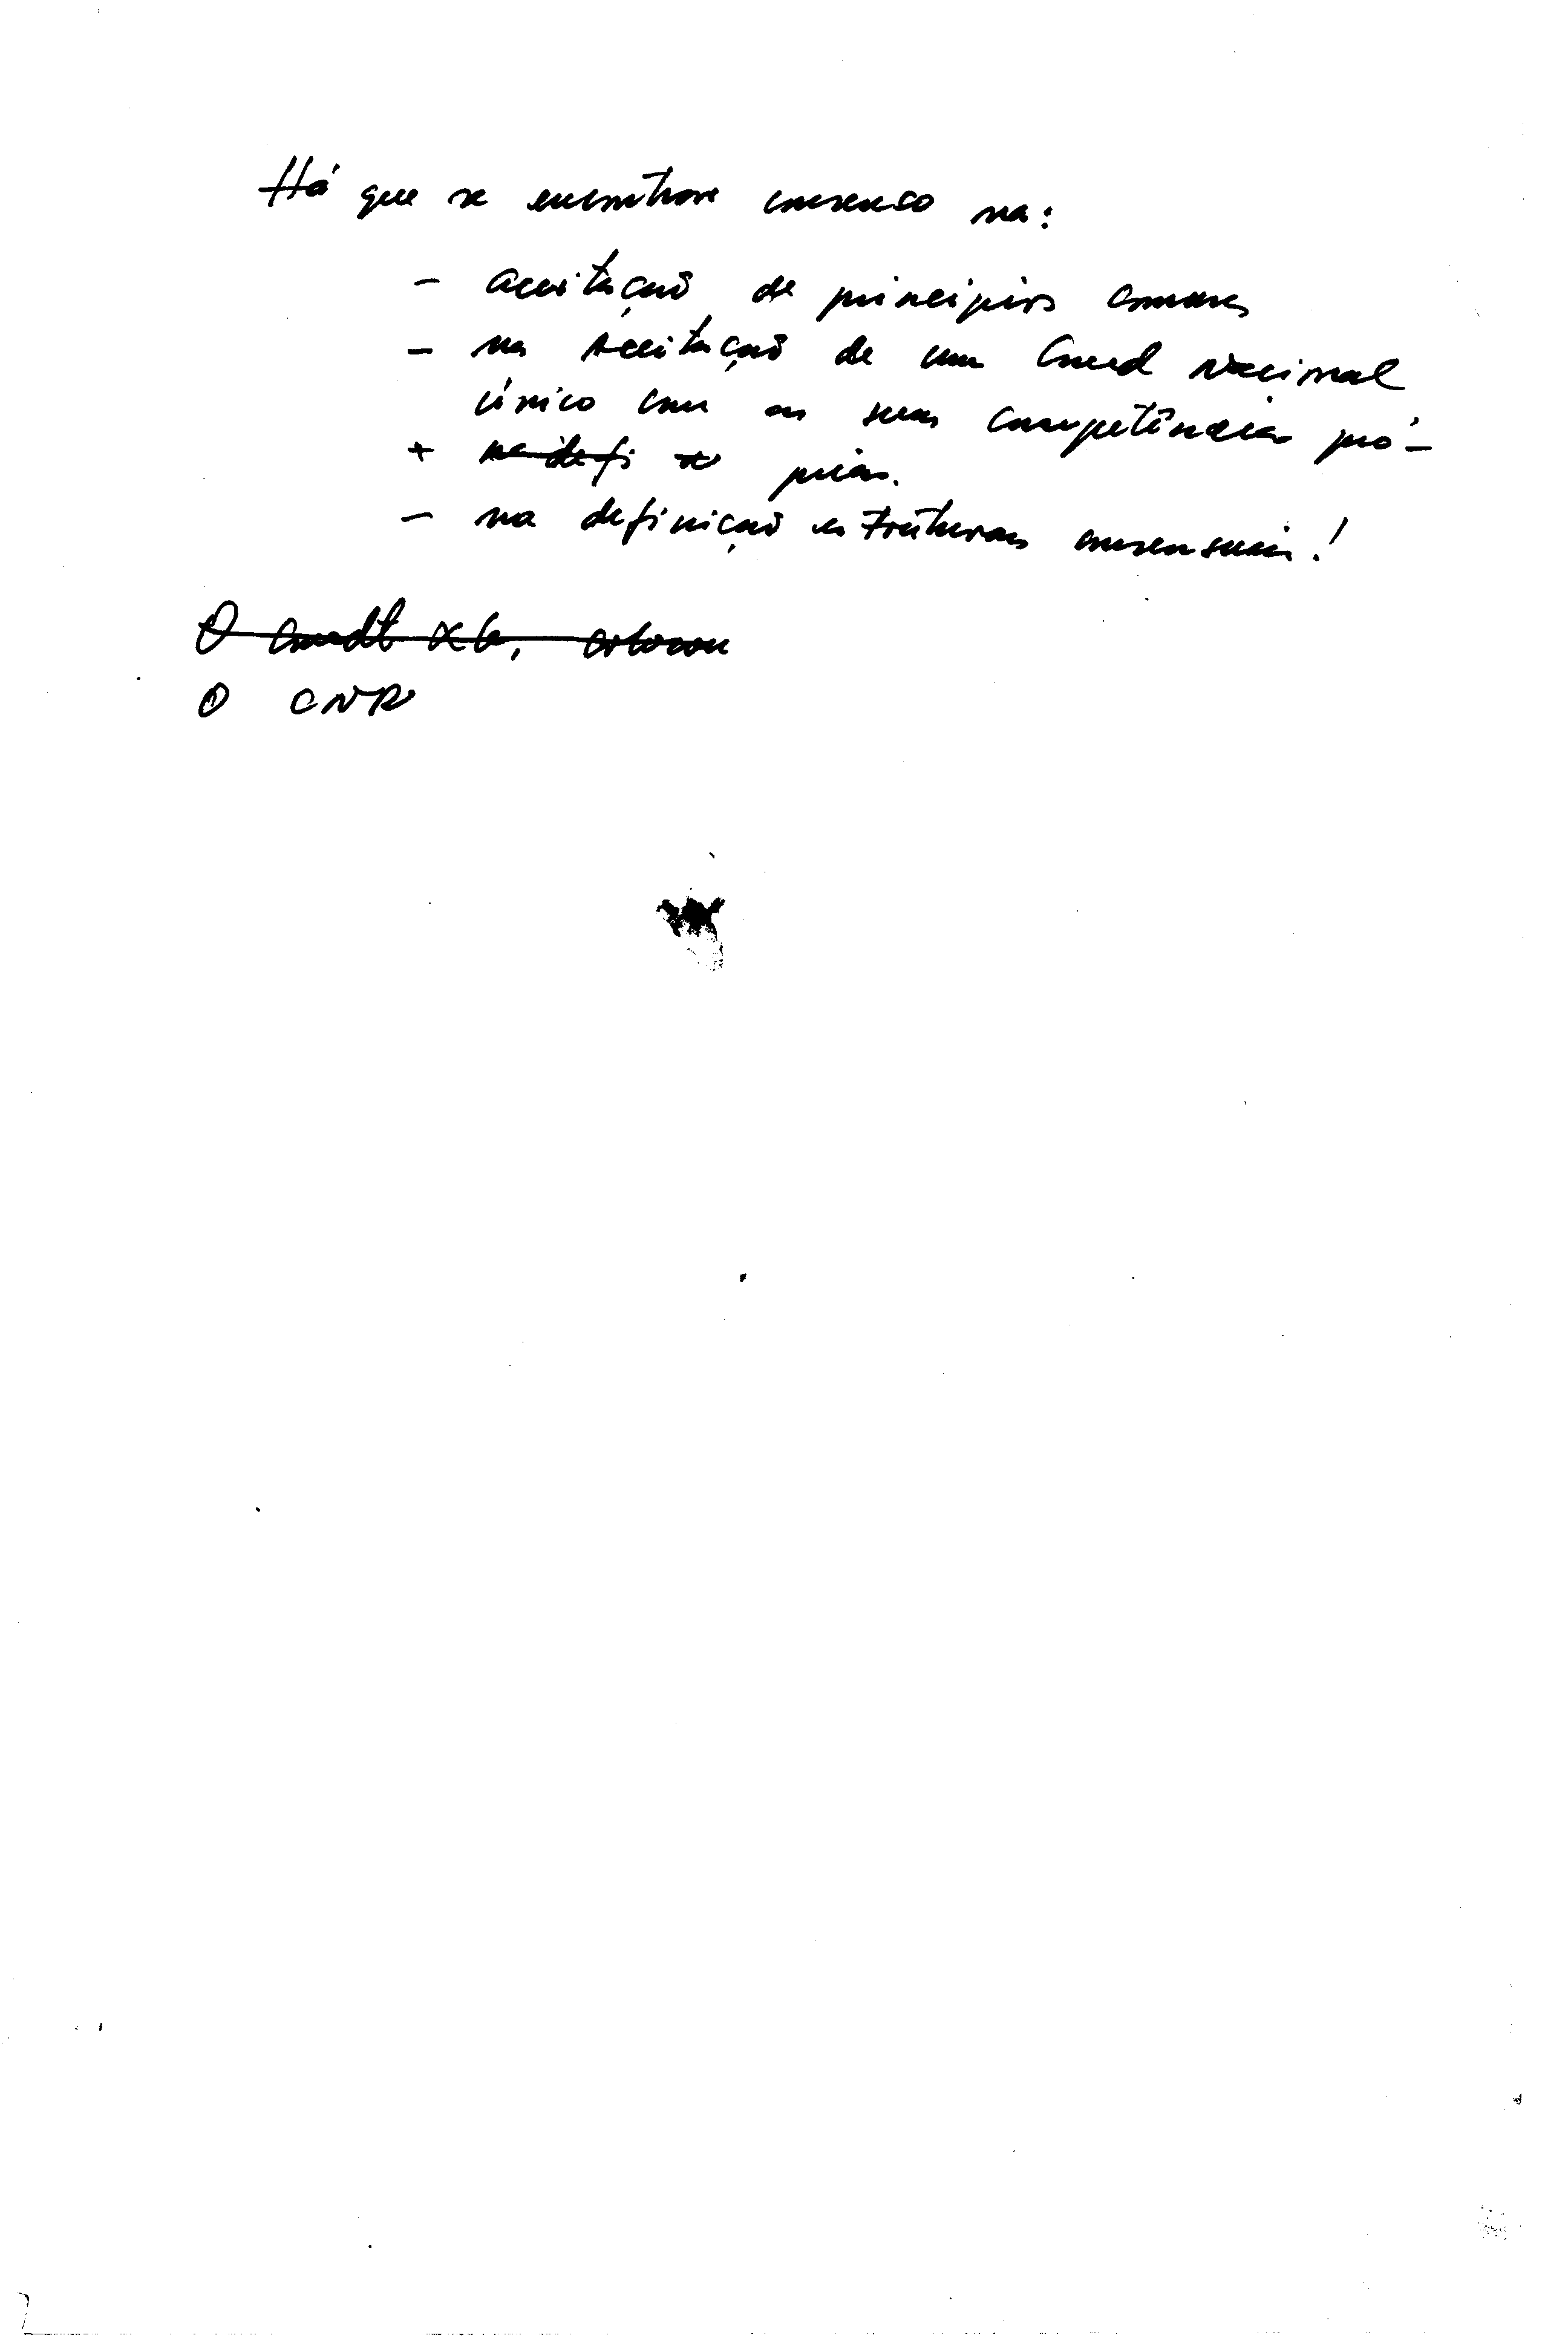 Há que se encontrar consenso na:
- aceitação de principios comuns
- na aceitação de um Cmed Nacional
único com as suas competências pró-
+ na defi prias.
- na definição estruturas consensuais!
O colocou
O CNR